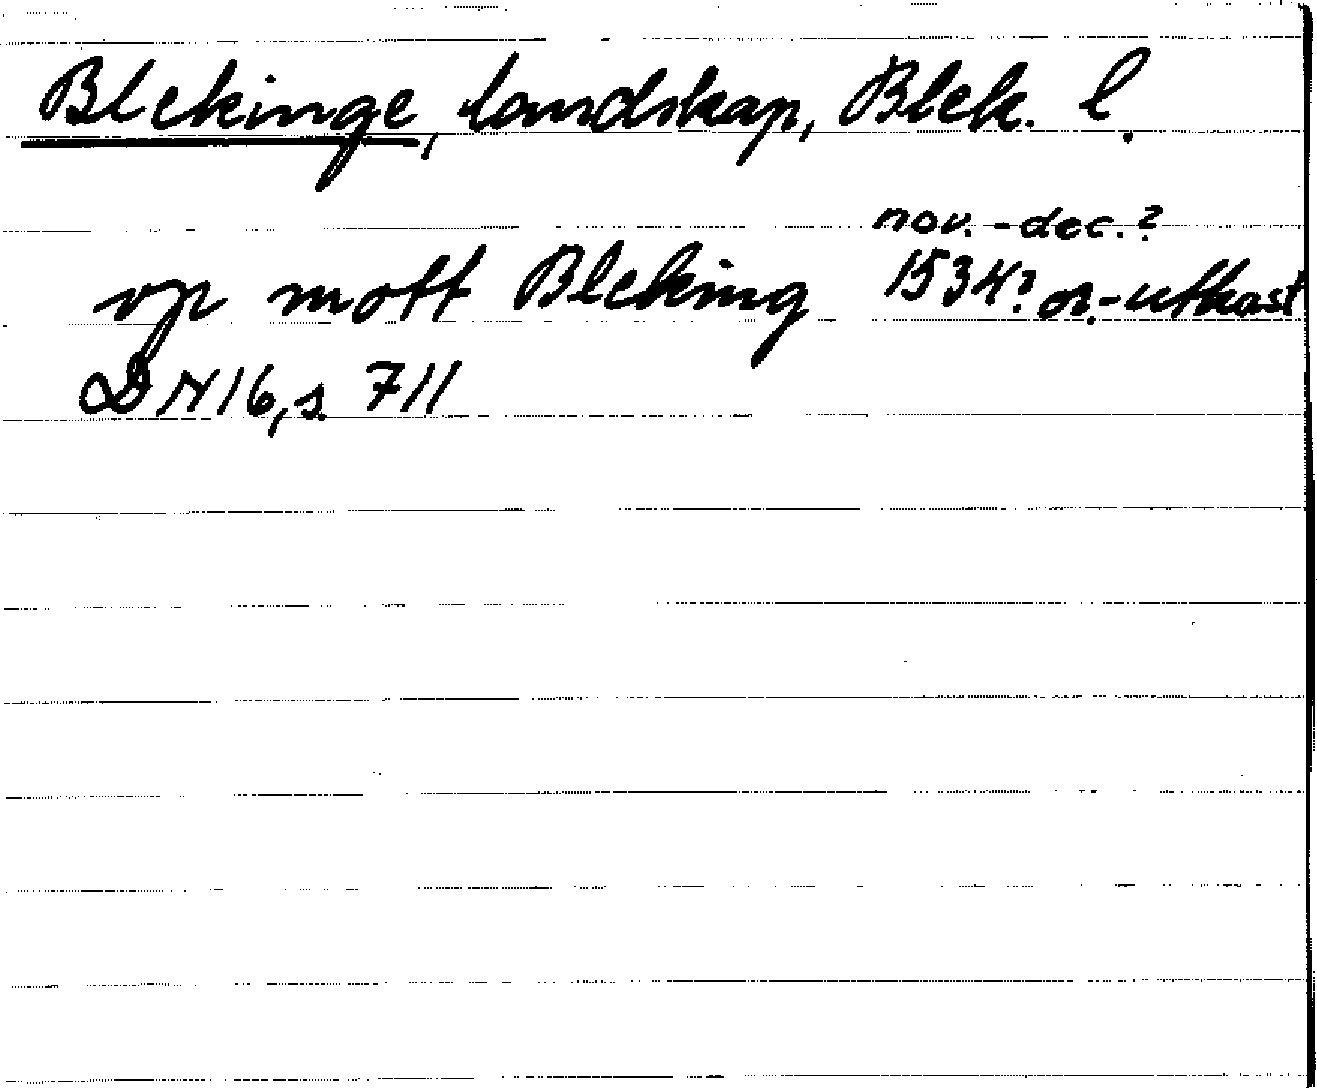 Blekinge, landskap, Blek. l.
nov. - dec. ?
vp mott Bleking 1534? or.-utkast
DN 16, s. 711